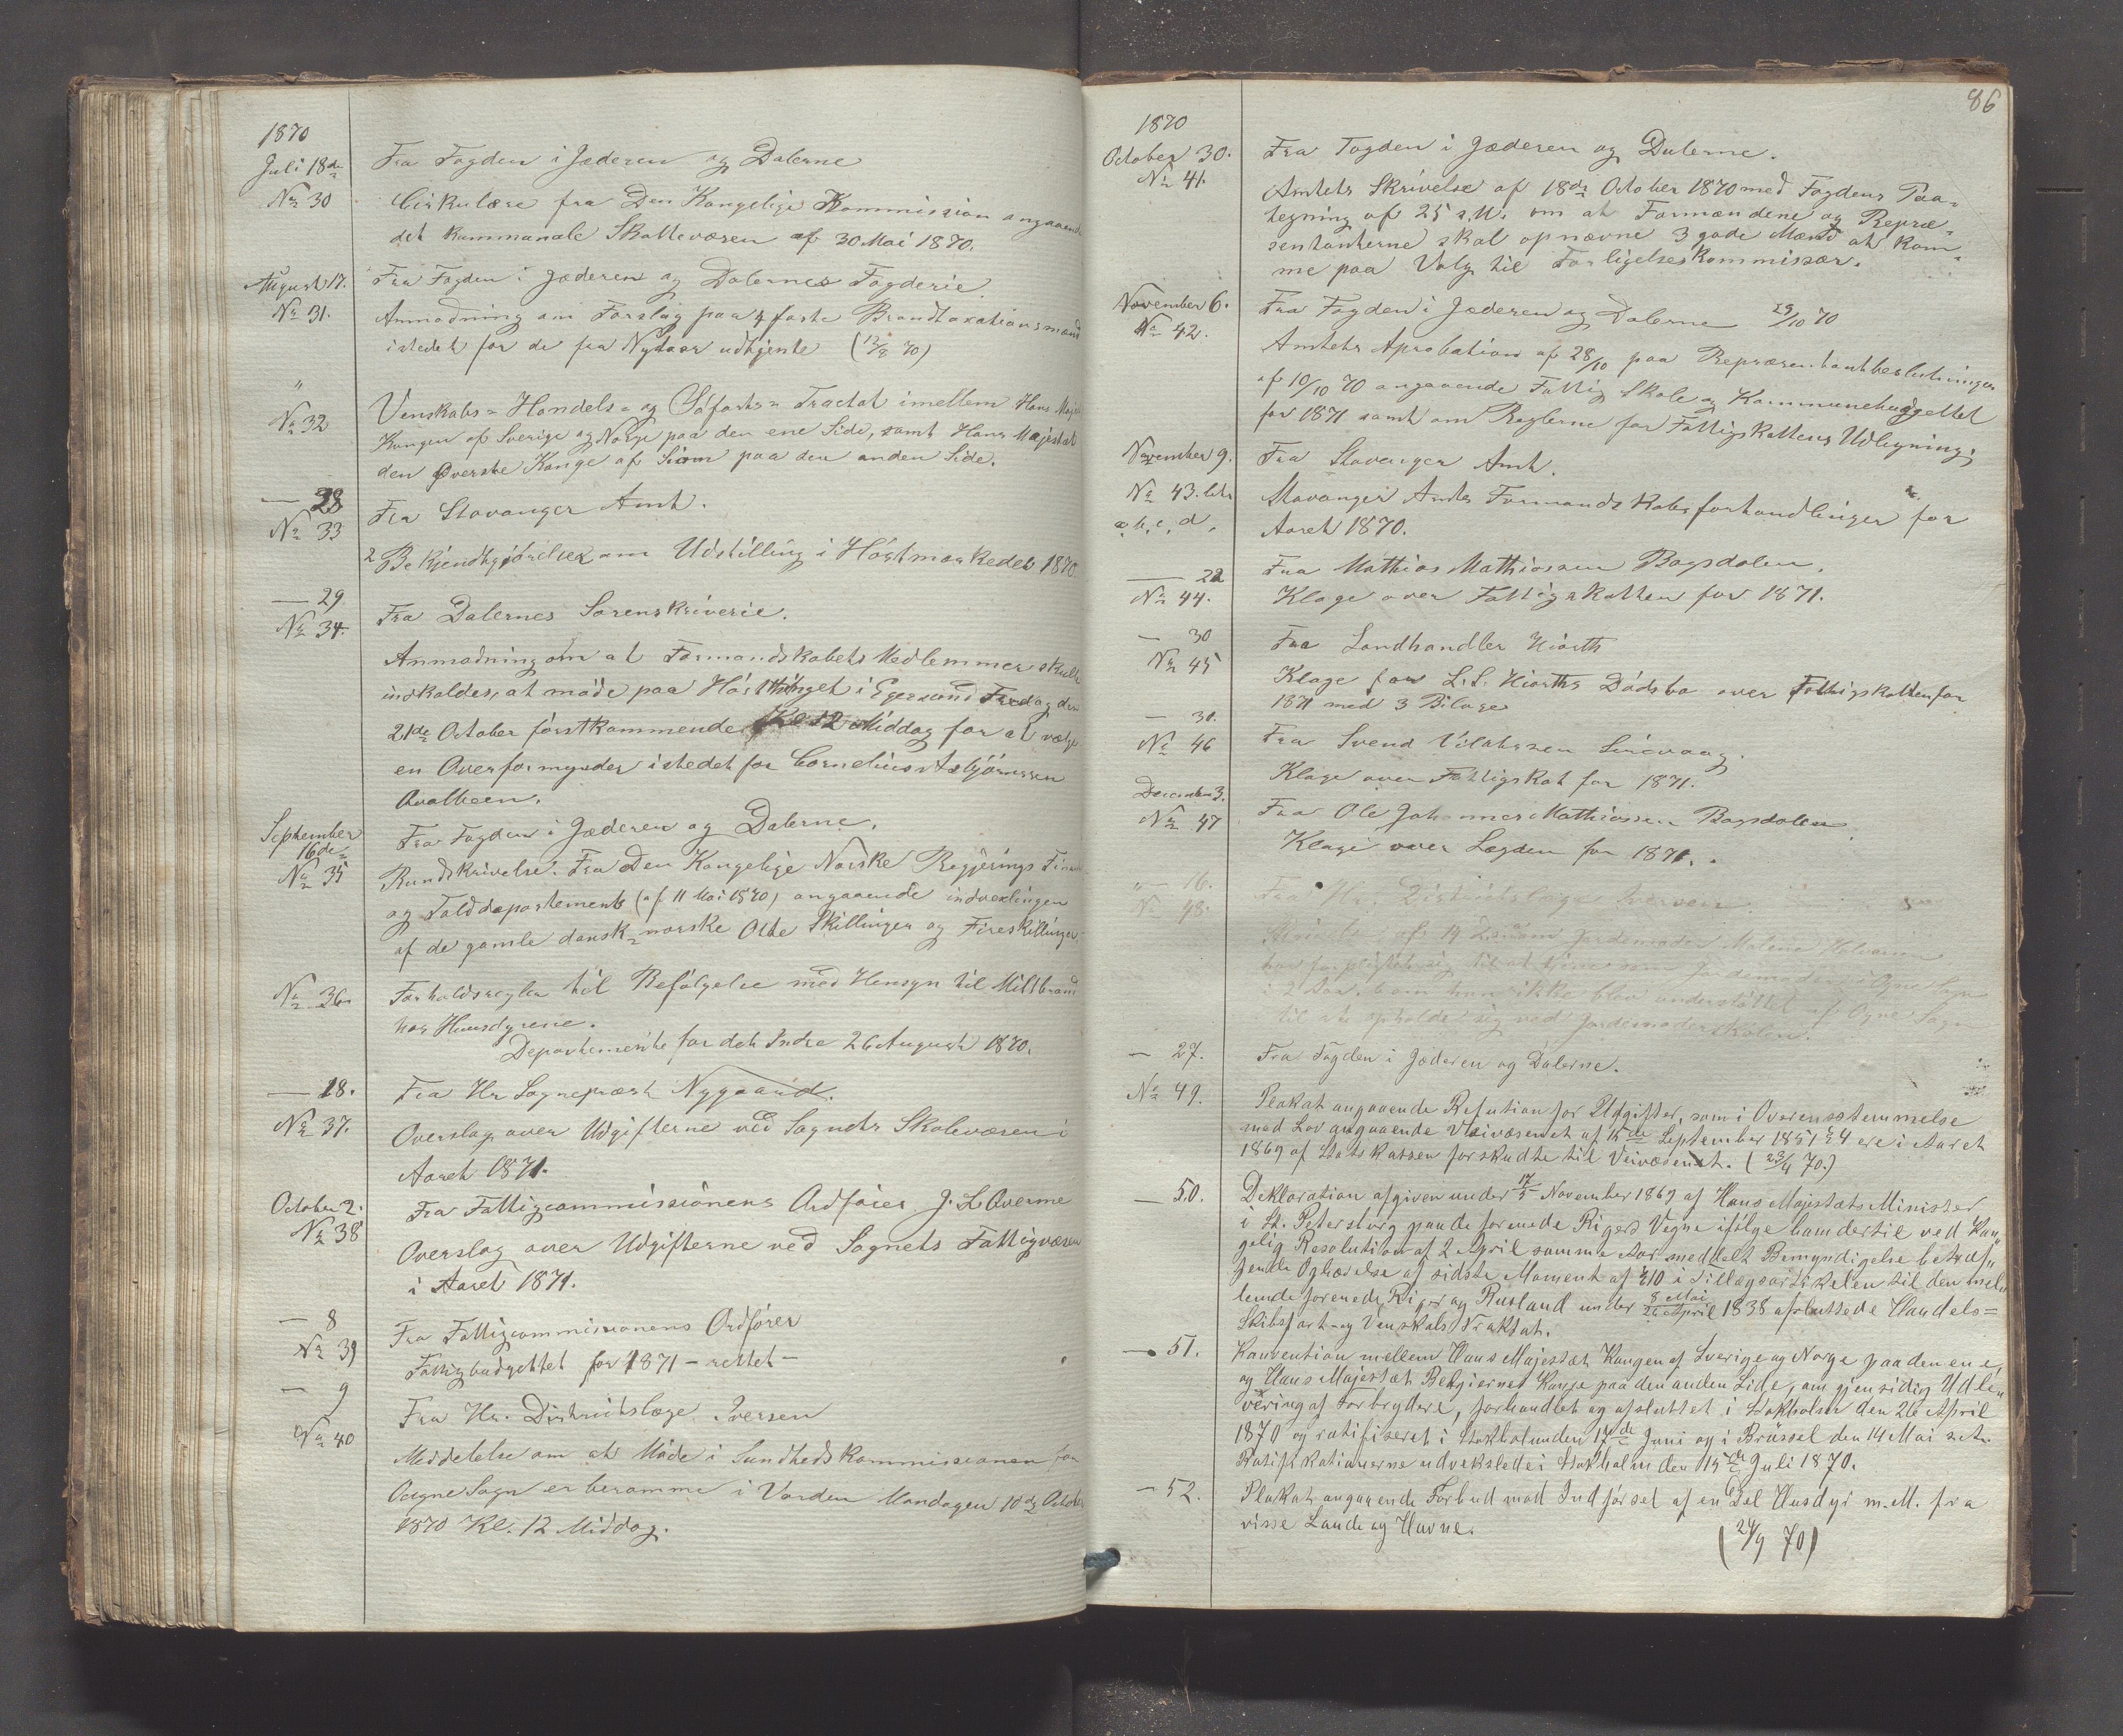 1870
Juli 18de
Fra Fogden i Jæderen og Dalerne
No 30
Cirkulære fra Den Kongelige Kommission angaaende
det kommunale Skattevæsen af 30 Mai 1870.
August 17.
Fra Fogden i Jæderen og Dalernes Fogderie.
No 31.
Anmodning om Forslag paa 4 faste Brandtaxationsmænd
istedet for de fra Nytaar udtjente (12/8 70)
"
No 32
Venskabs- Handels- og Søfarts- Tractat imellem Hans Maje
Kongen af Sverige og Norge paa den ene Side, samt Hans Majestæt
den Øverste Konge af Siam paa den anden Side.
— 28
Fra Stavanger Amt.
No 33
2 Bekjendtgjørelser om Udstilling i Høstmarkedet 1870
— 29
Fra Dalernes Sorenskriverie.
No 34.
Anmodning om at Formandskabets Medlemmer skulle
indkaldes, at møde paa Høstthinget i Egersund Fredag den
21de October førstkommende Kl 12 Middag for at vælge
en Overformynder istedet for Cornelius Asbjørnsen
Qvalbeen.
September
16de
Fra Fogden i Jæderen og Dalerne.
No 35
Rundskrivelse. Fra Den Kongelige Norske Regjerings Finants
og Tolddepartement (af 11 Mai 1870) angaaende indvexlingen
af de gamle dansk-norske Otte Skillinger og Fireskillinger
No 36
Forholdsregler til Befølgelse med Hensyn til Miltbrand
hos Huusdyrene.
Departementet for det Indre 26 August 1870.
— 18.
Fra Hr Sognepræst Nygaard.
No 37.
Overslag over Udgifterne ved Sognets Skolevæsen i
Aaret 1871.
October 2.
Fra Fattigcommissionens Ordfører J. L Qverme
No 38
Overslag over Udgifterne ved Sognets Fattigvæsen
i Aaret 1871.
— 8
Fra Fattigcommissionens Ordfører
No 39
Fattigbudgettet for 1871 - rettet -
— 9
Fra Hr. Districtslæge Iversen
No 40
Meddelelse om at Møde i Sundhedskommissionen for
Ogne Sogn er berammet i Varden Mandagen 10de October
1870 Kl. 12 Middag.
86
1870
October 30.
Fra Fogden i Jæderen og Dalerne.
No 41.
Amtets Skrivelse af 18de October 1870 med Fogdens Paa-
tegning af 25 s.M. om at Formændene og Repræ-
sentanterne skal opnævne 3 gode Mænd at kom-
me paa Valg til Forligelseskommissær.
November 6.
Fra Fogden i Jæderen og Dalerne 29/10 70
No 42.
Amtets Aprobation af 28/10 paa Repræsentantbeslutningen
af 10/10 70 angaaende Fattig Skole og Kommunebudgettet
for 1871 samt om Reglerne for Fattigskattens Udligning;
November 9.
Fra Stavanger Amt.
No 43. litr
a, b, c, d,
Stavanger Amts Formandskabsforhandlinger for
Aaret 1870.
— 22
Fra Mathias Mathiassen Bagsdalen.
No 44.
Klage over Fattigskatten for 1871.
— 30
Fra Landhandler Hiorth
No 45
Klage for L. L. Hiorths Dødsbo over Fattigskatten for
1871 med 3 Bilage
— 30.
Fra Svend Sirevaag.
No 46
Klage over Fattigskat for 1871.
December 3.
Fra Ole Johannes Mathiassen Bagsdalen
No 47
Klage over Lægden for 1871.
— 16.
Fra Hr. Districtslæge Iversen
No 48.
af 14 Jordemoder Malene
har forpligtet sig til at tjene som Jordemoder i Ogne Sogn
i 2 Aar, hun ikke blev understøttet af Ogne Sogn
til at opholde sig ved Jordemoderskolen.
— 27.
Fra Fogden i Jæderen og Dalerne.
No 49.
Plakat angaaende Refution for Udgifter, som i Overensstemmelse
med Lov angaaende Veivæsenet af 15de September 1851 § 4 ere i Aaret
1869 af Statskassen forskudte til Veivæsenet. (23/4 70.)
— 50.
Deklaration afgiven under 17/5 November 1869 af Hans Majestæts Minister
i St. Petersburg paa de forenede Rigers Vegne ifølge ham dertil ved Kon-
gelig Resolution af 2 April samme Aar meddelt Bemyndigelse betræf-
fende Ophævelse af sidste Moment af § 10 i Tillægsartikelen til den mel-
lem de forenede Riger og Rusland under 8 Mai/26 April 1838 afsluttede Handels-
Skibsfart- og Venskabs Traktat.
— 51.
Konvention mellem Hans Majestæt Kongen af Sverige og Norge paa den ene,
og Hans Majestæt Belgiernes Konge paa den anden Side, om gjensidig Udle-
vering af Forbrydere, forhandlet og afsluttet i Stokholm den 26 April
1870 og ratifiseret i Stokholm den 17de Juni og i Brüssel den 14 Mai s. A.
Ratifikationerne udvekslede i Stokholm den 15de Juli 1870.
— 52.
Plakat angaaende Forbud mod Indførsel af en Del Husdyr m.M. fra
visse Lande og Havne.
(24/9 70)